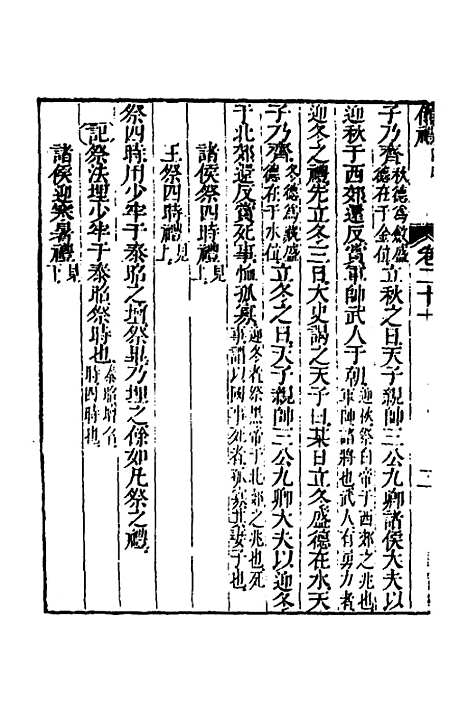 子乃齊秋德為斂盛德在于金位立秋之日天子親帥三公九卿諸侯大夫以
迎秋于西郊還反賞軍帥武人于朝迎秋祭白帝于西郊之兆也軍帥諸將也武人有勇力者
迎冬之禮先立冬三日大史謁之天子曰某日立冬盛德在水天
子乃齊冬德為斂盛德在于水位立冬之日天子親帥三公九卿大夫以迎冬
于北郊還反賞死事恤孤寡迎冬者祭黑帝于北郊之兆也死事謂以國事死者孤寡其妻子也
諸侯祭四時禮見上
王祭四時禮見上
祭四時用少牢于泰昭之壇祭畢乃埋之餘如凡祭之禮
記祭法埋少牢于泰昭祭時也泰昭壇名時四時也
諸侯迎寒暑禮見下